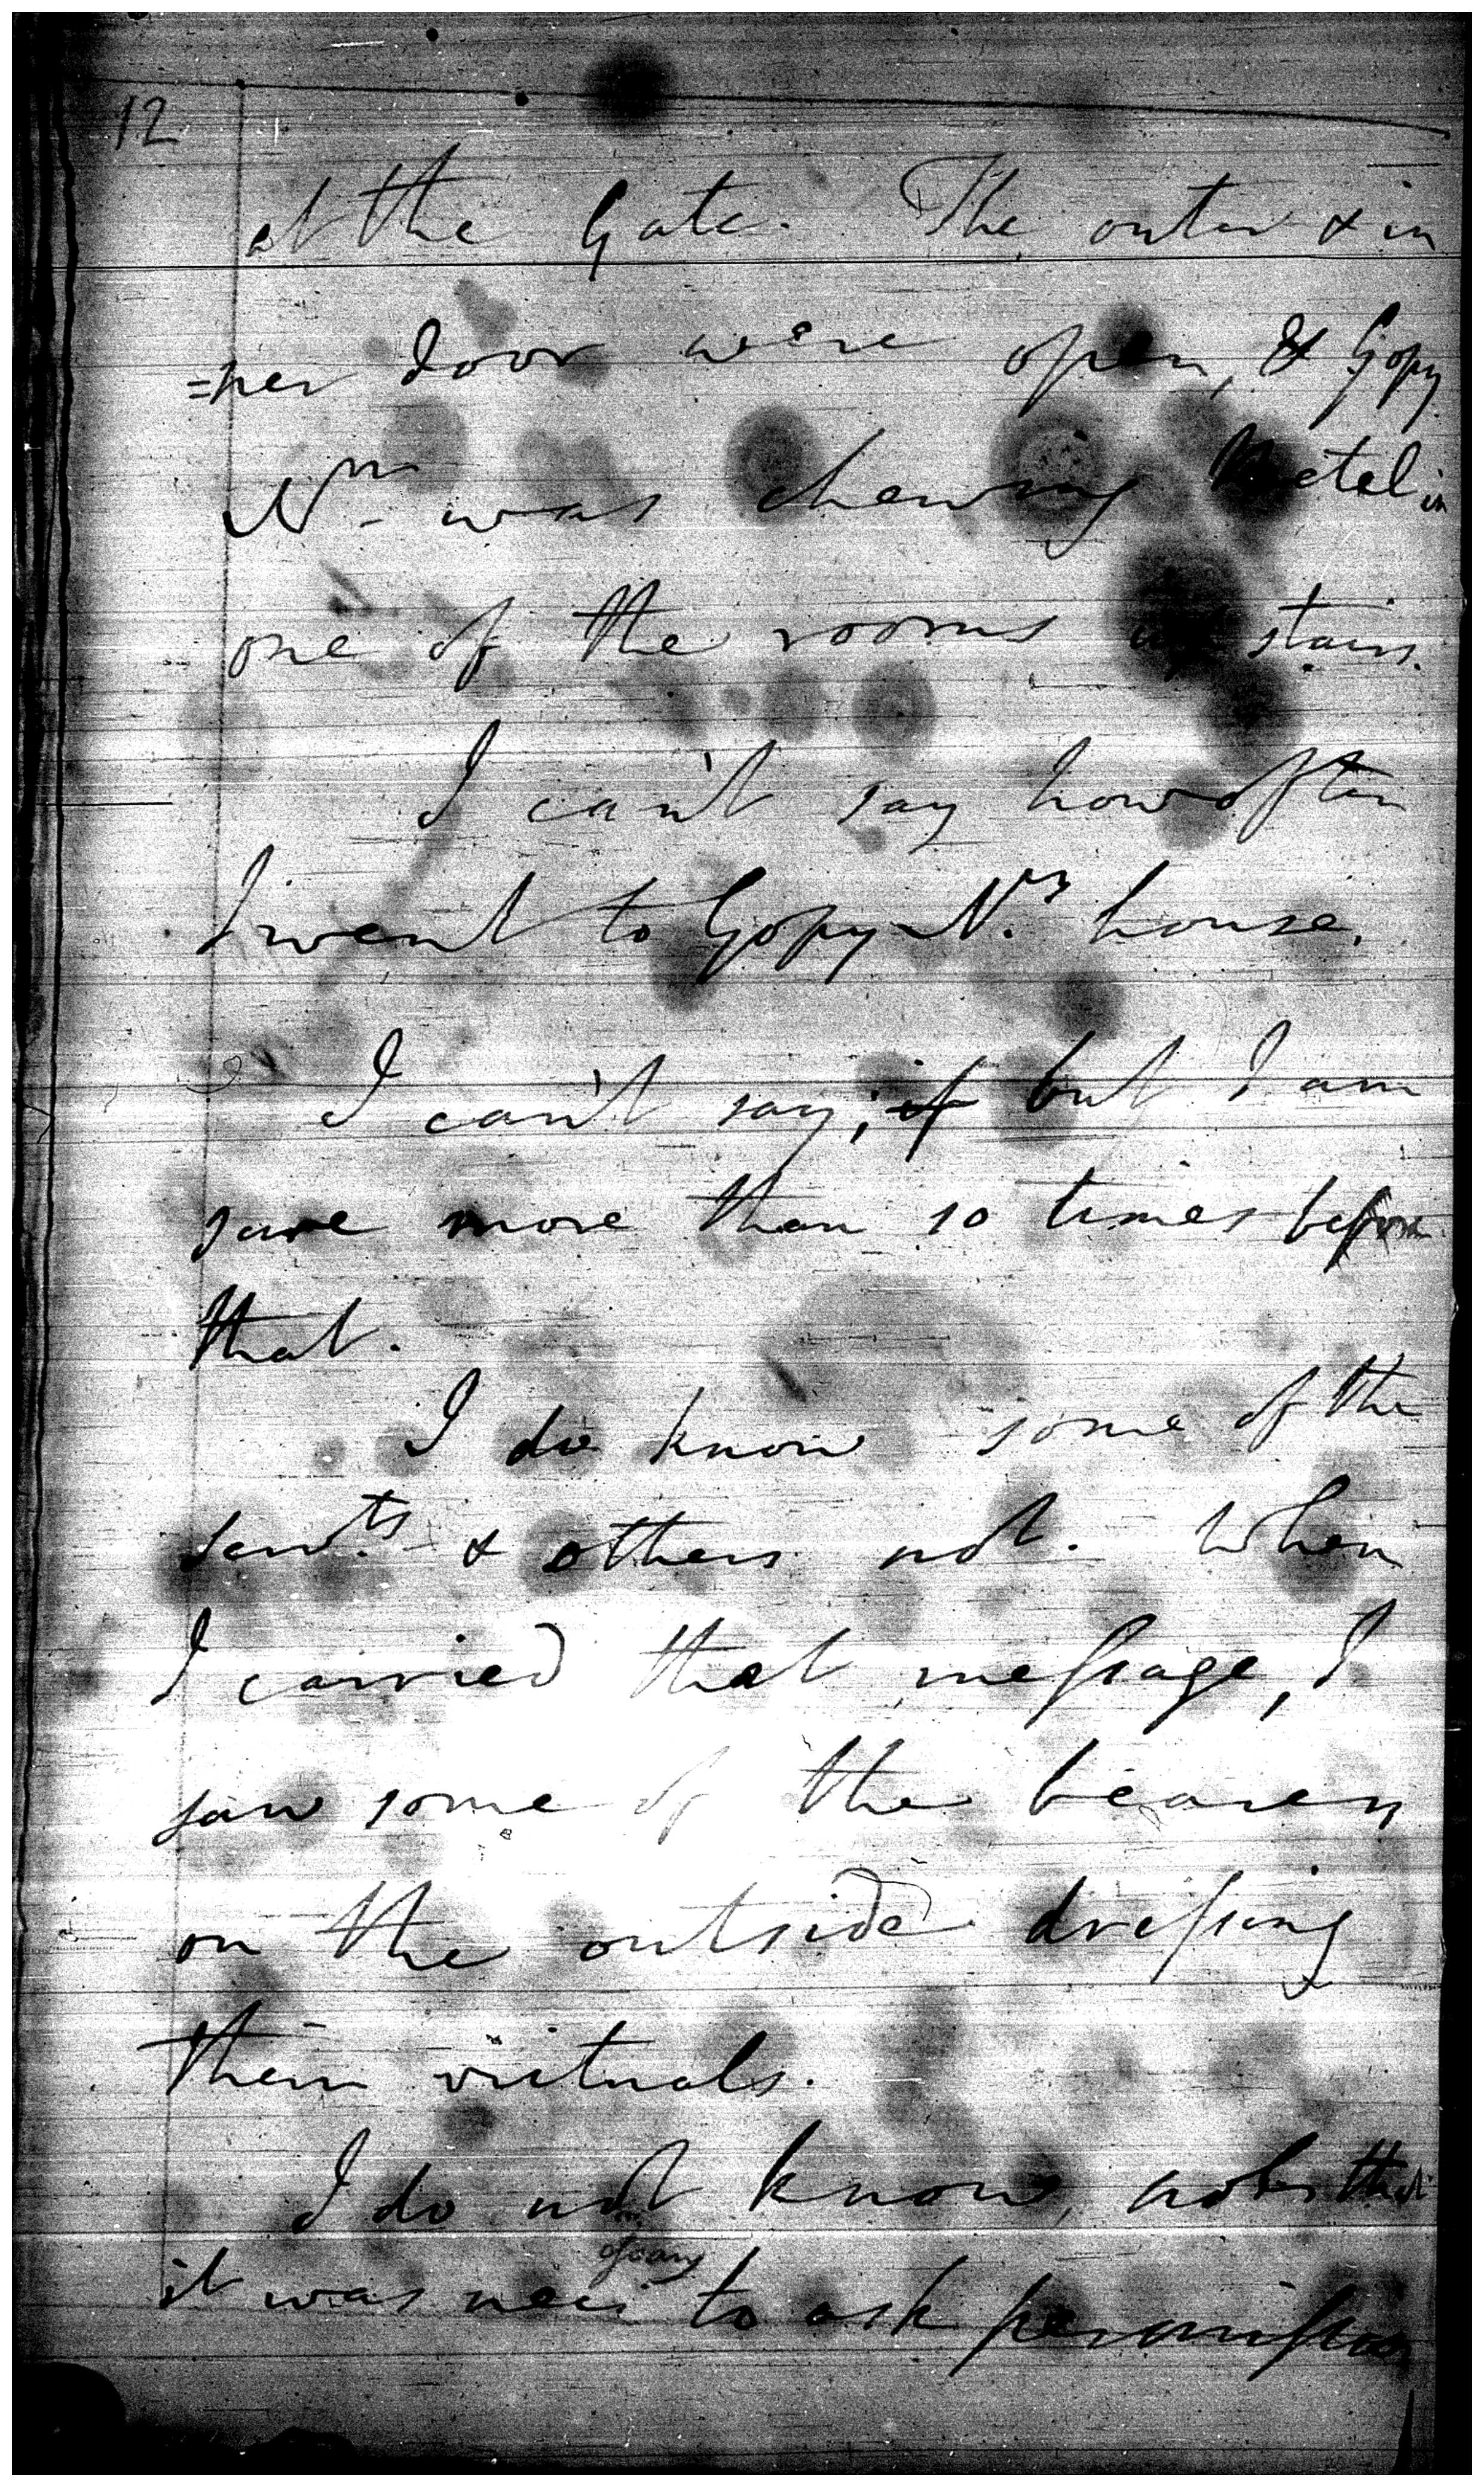 12
at the Gate. The outer & in
=ner door were open, & Gopy
Nn. was chewing Betel in
one of the rooms up stairs.
I can't say how often
I went to Gopy Ns. house.
I can't say; if but I am
sure more than 10 times before
that.
I do know some of the
servts. & others not. When
I carried that message, I
saw some of the bearers
on the outside dressing
their victuals.
I do not know, nobs that
essary
it was nec to ask permission